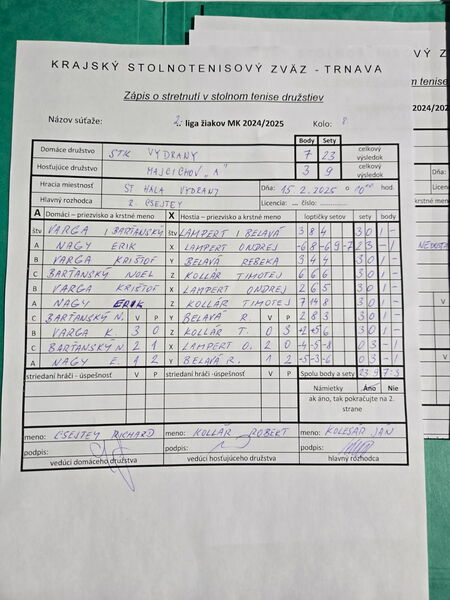 KRAJSKÝ STOLNOTENISOVÝ ZVÄZ - TRNAVA
Zápis o stretnutí v stolnom tenise družstiev
Názov súťaže: 2. liga žiakov MK 2024/2025 Kolo: 8
Body Sety
Domáce družstvo STK VYDRANY 7 23 celkový výsledok
Hosťujúce družstvo MAJCICHOV "A" 3 9 celkový výsledok
Hracia miestnosť ŠT HALA VYDRANY Dňa: 15.2.2025 o 10 hod.
Hlavný rozhodca R. CSEJTEY Licencia: ... číslo:
A Domáci – priezvisko a krstné meno X Hostia – priezvisko a krstné meno loptičky setov sety body
štv VARGA I BARTANSKÝ štv LAMPERT I BELAVÁ 3 8 4 3 0 1 -
A NAGY ERIK X LAMPERT ONDREJ -6 8 -6 9 -7 2 3 - 1
B VARGA KRIŠTOF Y BELAVÁ REBEKA 3 4 4 3 0 1 -
C BARTANSKÝ NOEL Z KOLLÁR TIMOTEJ 6 6 6 3 0 1 -
B VARGA KRIŠTOF X LAMPERT ONDREJ 2 6 5 3 0 1 -
A NAGY ERIK Z KOLLÁR TIMOTEJ 7 14 8 3 0 1 -
C BARTANSKÝ N. V P Y BELAVÁ R. V P 2 8 3 3 0 1 -
B VARGA K. 3 0 Z KOLLÁR T. 0 3 3 0 1 -
C BARTANSKÝ N. 2 1 X LAMPERT O. 2 0 -4 -5 -8 0 3 - 1
A NAGY E. 1 2 Y BELAVÁ R. 1 2 -5 -3 -6 0 3 - 1
striedaní hráči - úspešnosť V P striedaní hráči - úspešnosť V P Spolu body a sety 23 9 7:3
Námietky Áno Nie
ak áno, tak pokračujte na 2. strane
meno: CSEJTEY RICHARD meno: KOLLÁR RÓBERT meno: KOLESÁR JÁN
podpis: podpis: podpis:
vedúci domáceho družstva vedúci hosťujúceho družstva hlavný rozhodca